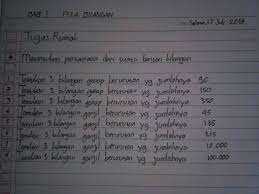 BAB 1 POLA BILANGAN
Selasa, 17 Juli 2018
Tugas Rumah
Menentukan persamaan dari suatu barisan bilangan
Temukan 3 bilangan genap berurutan yg jumlahnya 90
Temukan 3 bilangan genap berurutan yg jumlahnya 150
Temukan 3 bilangan genap berurutan yg jumlahnya 350
Temukan 3 bilangan ganjil berurutan yg jumlahnya 45
Temukan 3 bilangan ganjil berurutan yg jumlahnya 135
Temukan 3 bilangan ganjil berurutan yg jumlahnya 315
Temukan 4 bilangan ganjil berurutan yg jumlahnya 10.000
Temukan 4 bilangan ganjil berurutan yg jumlahnya 100.000